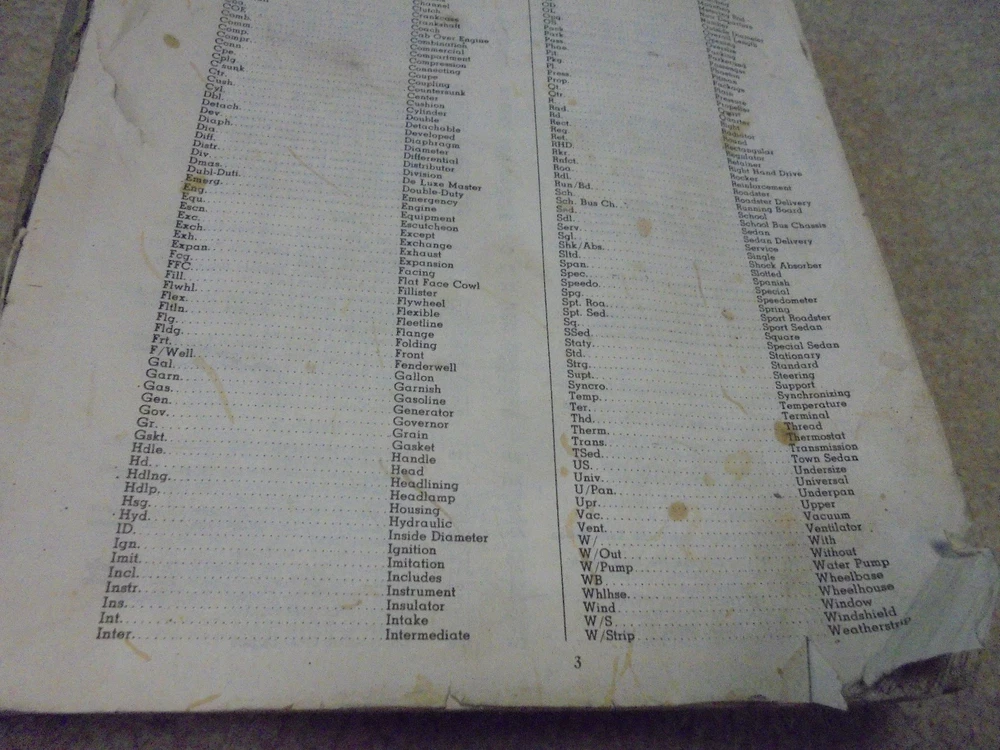 Channel
Clutch
Crankcase
Crankshaft
Coach
COE Cab Over Engine
Comb. Combination
Comm. Commercial
Comp. Compartment
Compr. Compression
Conn. Connecting
Cpe. Coupe
Cplg. Coupling
C'sunk Countersunk
Ctr. Center
Cush. Cushion
Cyl. Cylinder
Dbl. Double
Detach. Detachable
Dev. Developed
Diaph. Diaphragm
Dia. Diameter
Diff. Differential
Distr. Distributor
Div. Division
Dmas. De Luxe Master
Dubl-Duti. Double-Duty
Emerg. Emergency
Eng. Engine
Equ. Equipment
Escn. Escutchean
Exc. Except
Exch. Exchange
Exh. Exhaust
Expan. Expansion
Fcg. Facing
FFC. Flat Face Cowl
Fill. Fillister
Flwhl. Flywheel
Flex. Flexible
Fltln. Fleetline
Flg. Flange
Fldg. Folding
Frt. Front
F/Well. Fenderwell
Gal. Gallon
Garn. Garnish
Gas. Gasoline
Gen. Generator
Gov. Governor
Gr. Grain
Gskt. Gasket
Hdle. Handle
Hd. Head
Hdlng. Headlining
Hdlp. Headlamp
Hsg. Housing
Hyd. Hydraulic
ID. Inside Diameter
Ign. Ignition
Imit. Imitation
Incl. Includes
Instr. Instrument
Ins. Insulator
Int. Intake
Inter. Intermediate
Pkg. Package
Pl. Plain
Press. Pressure
Prop. Propeller
Qt.
Qtr. Quarter
R. Right
Rad. Radiator
Rd. Round
Rect. Rectangular
Reg. Regulator
Ret. Retainer
RHD. Right Hand Drive
Rkr. Rocker
Rnfct. Reinforcement
Roa. Roadster
Rdl. Roadster Delivery
Run/Bd. Running Board
Sch. School
Sch. Bus Ch. School Bus Chassis
Sed. Sedan
Sdl. Sedan Delivery
Serv. Service
Sgl. Single
Shk/Abs. Shock Absorber
Sltd. Slotted
Span. Spanish
Spec. Special
Speedo. Speedometer
Spg. Spring
Spt. Roa. Sport Roadster
Spt. Sed. Sport Sedan
Sq. Square
SSed. Special Sedan
Staty. Stationary
Std. Standard
Strg. Steering
Supt. Support
Syncro. Synchronizing
Temp. Temperature
Ter. Terminal
Thd. Thread
Therm. Thermostat
Trans. Transmission
TSed. Town Sedan
US. Undersize
Univ. Universal
U/Pan. Underpan
Upr. Upper
Vac. Vacuum
Vent. Ventilator
W/ With
W/Out Without
W/Pump Water Pump
WB Wheelbase
Whlhse. Wheelhouse
Wind Window
W/S Windshield
W/Strip Weatherstrip
3